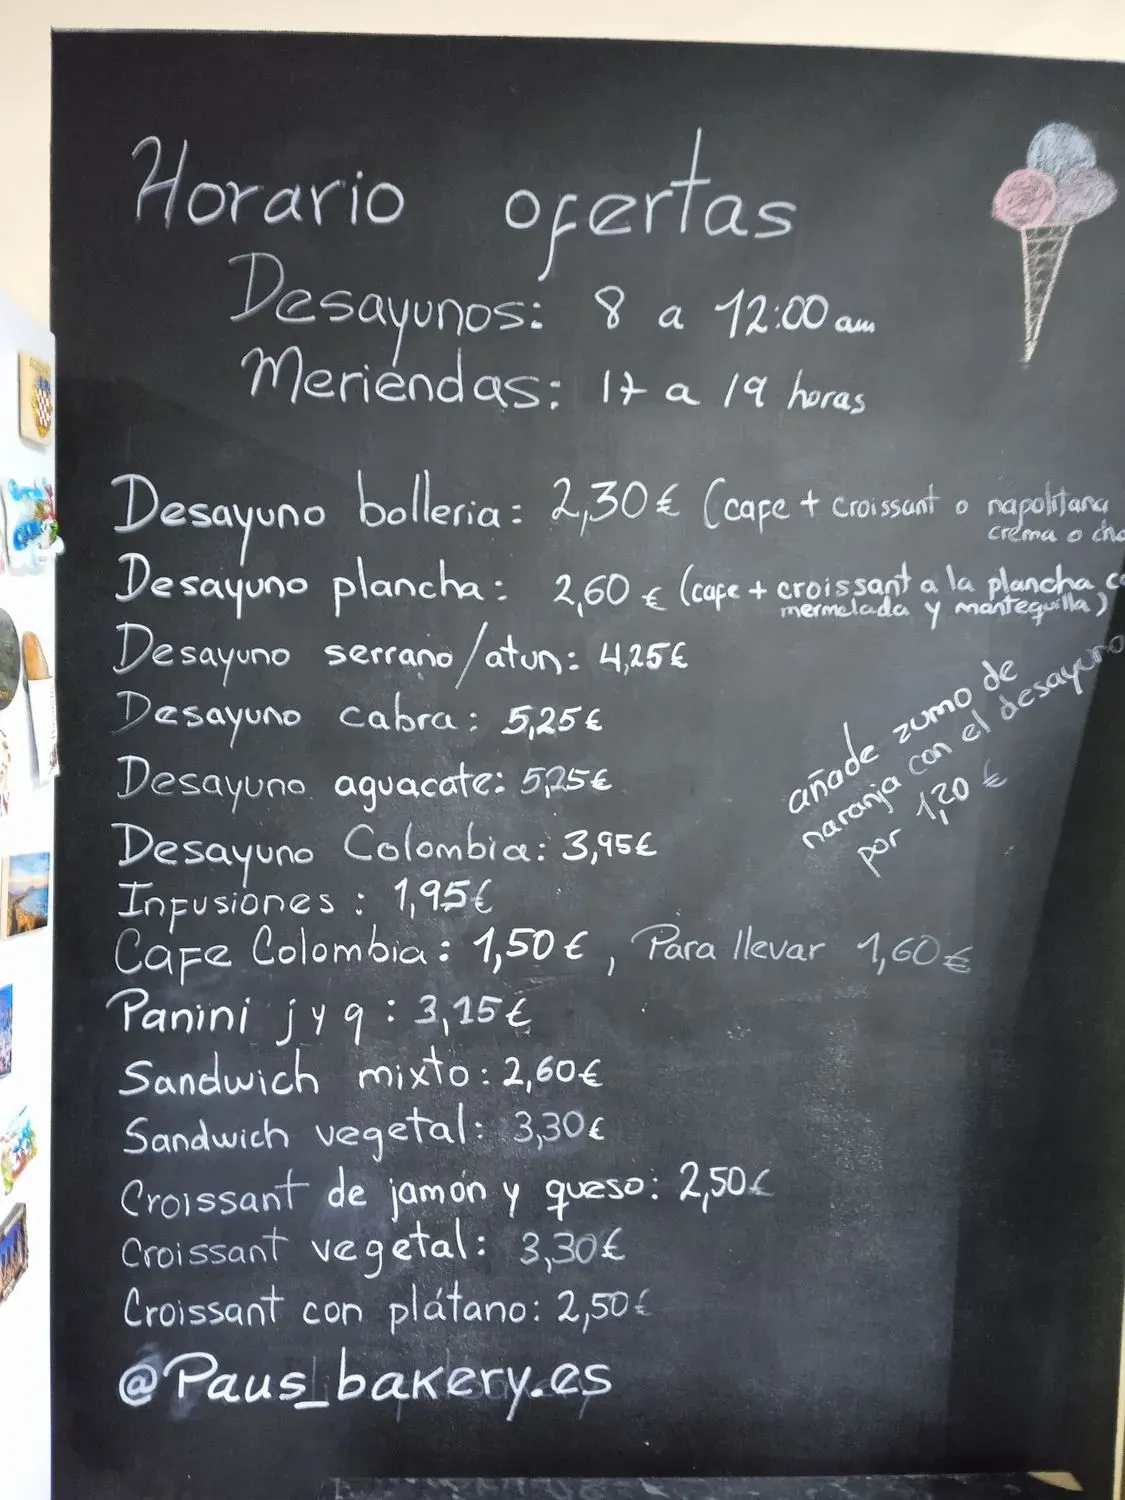 Horario ofertas
Desayunos: 8 a 12:00 am
Meriendas: 17 a 19 horas
Desayuno bolleria: 2,30 € (cafe + croissant o napolitana
crema o
Desayuno plancha: 2,60 € (cafe + croissant a la plancha
mermelada y mantequilla)
Desayuno serrano/atun: 4,25€
Desayuno cabra: 5,25€
Desayuno aguacate: 5,25€
añade zumo de
naranja con el desayuno
por 1,20 €
Desayuno Colombia: 3,95€
Infusiones: 1,95€
Cafe Colombia: 1,50€, Para llevar 1,60€
Panini j y q: 3,15€
Sandwich mixto: 2,60€
Sandwich vegetal: 3,30€
Croissant de jamón y queso: 2,50€
Croissant vegetal: 3,30€
Croissant con plátano: 2,50€
@Paus_bakery.es